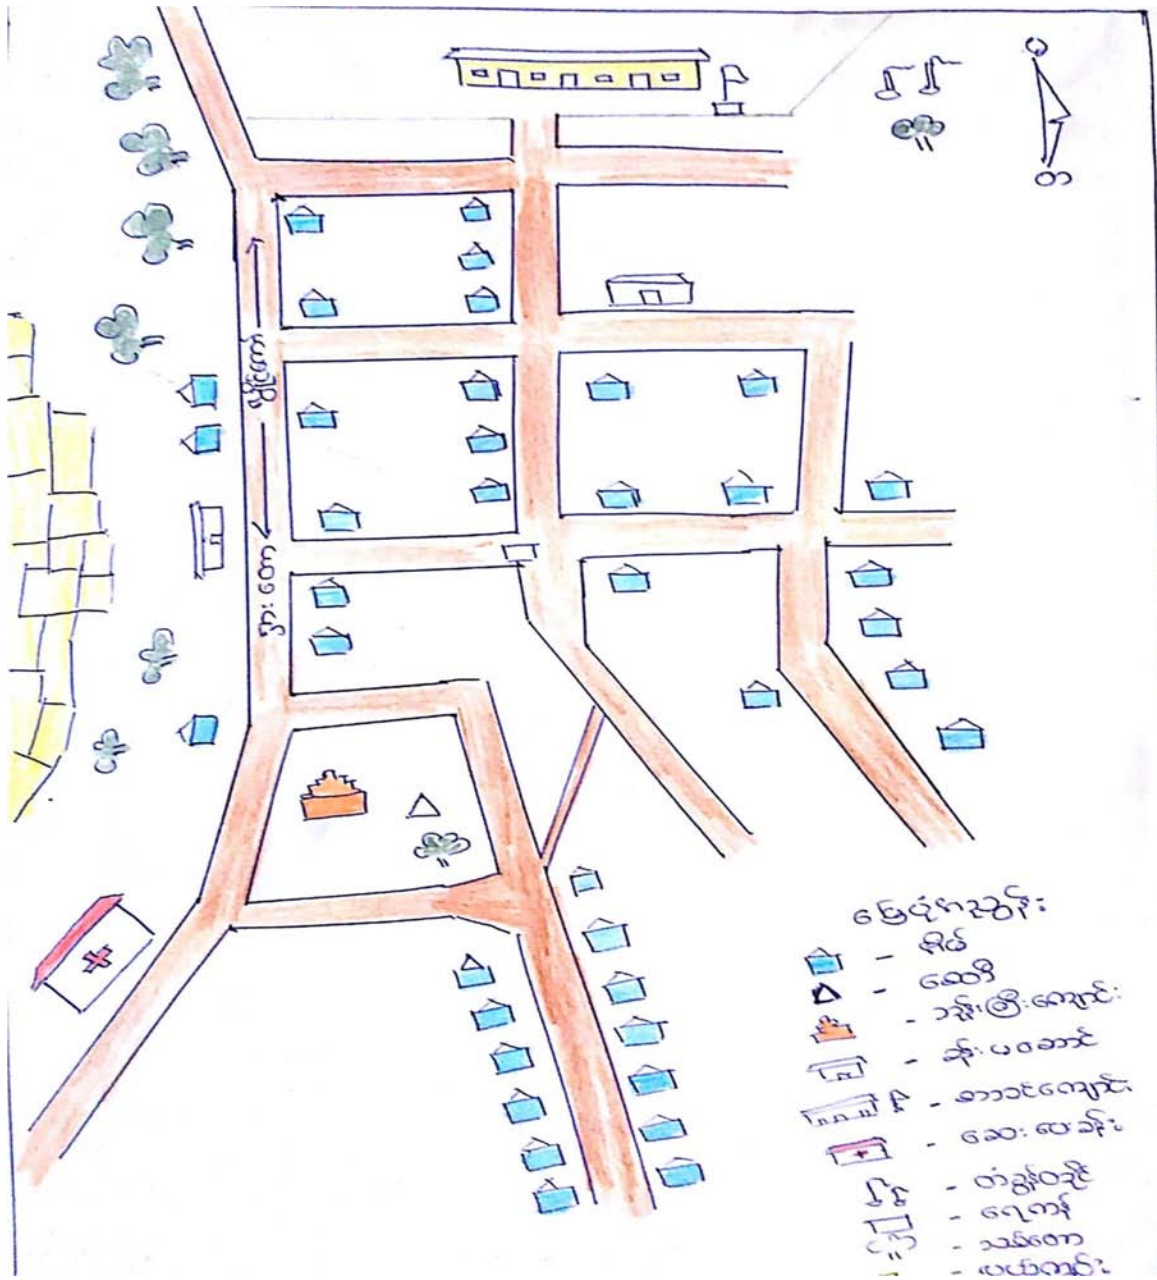 မြေပုံအညွှန်း
- အိမ်
- စေတီ
- ဘုန်းကြီးကျောင်း
- ခန်းမဆောင်
- စာသင်ကျောင်း
- ဆေးပေးခန်း
- တံခွန်တိုင်
- ရေကန်
- သစ်တော
- လယ်ကွင်း